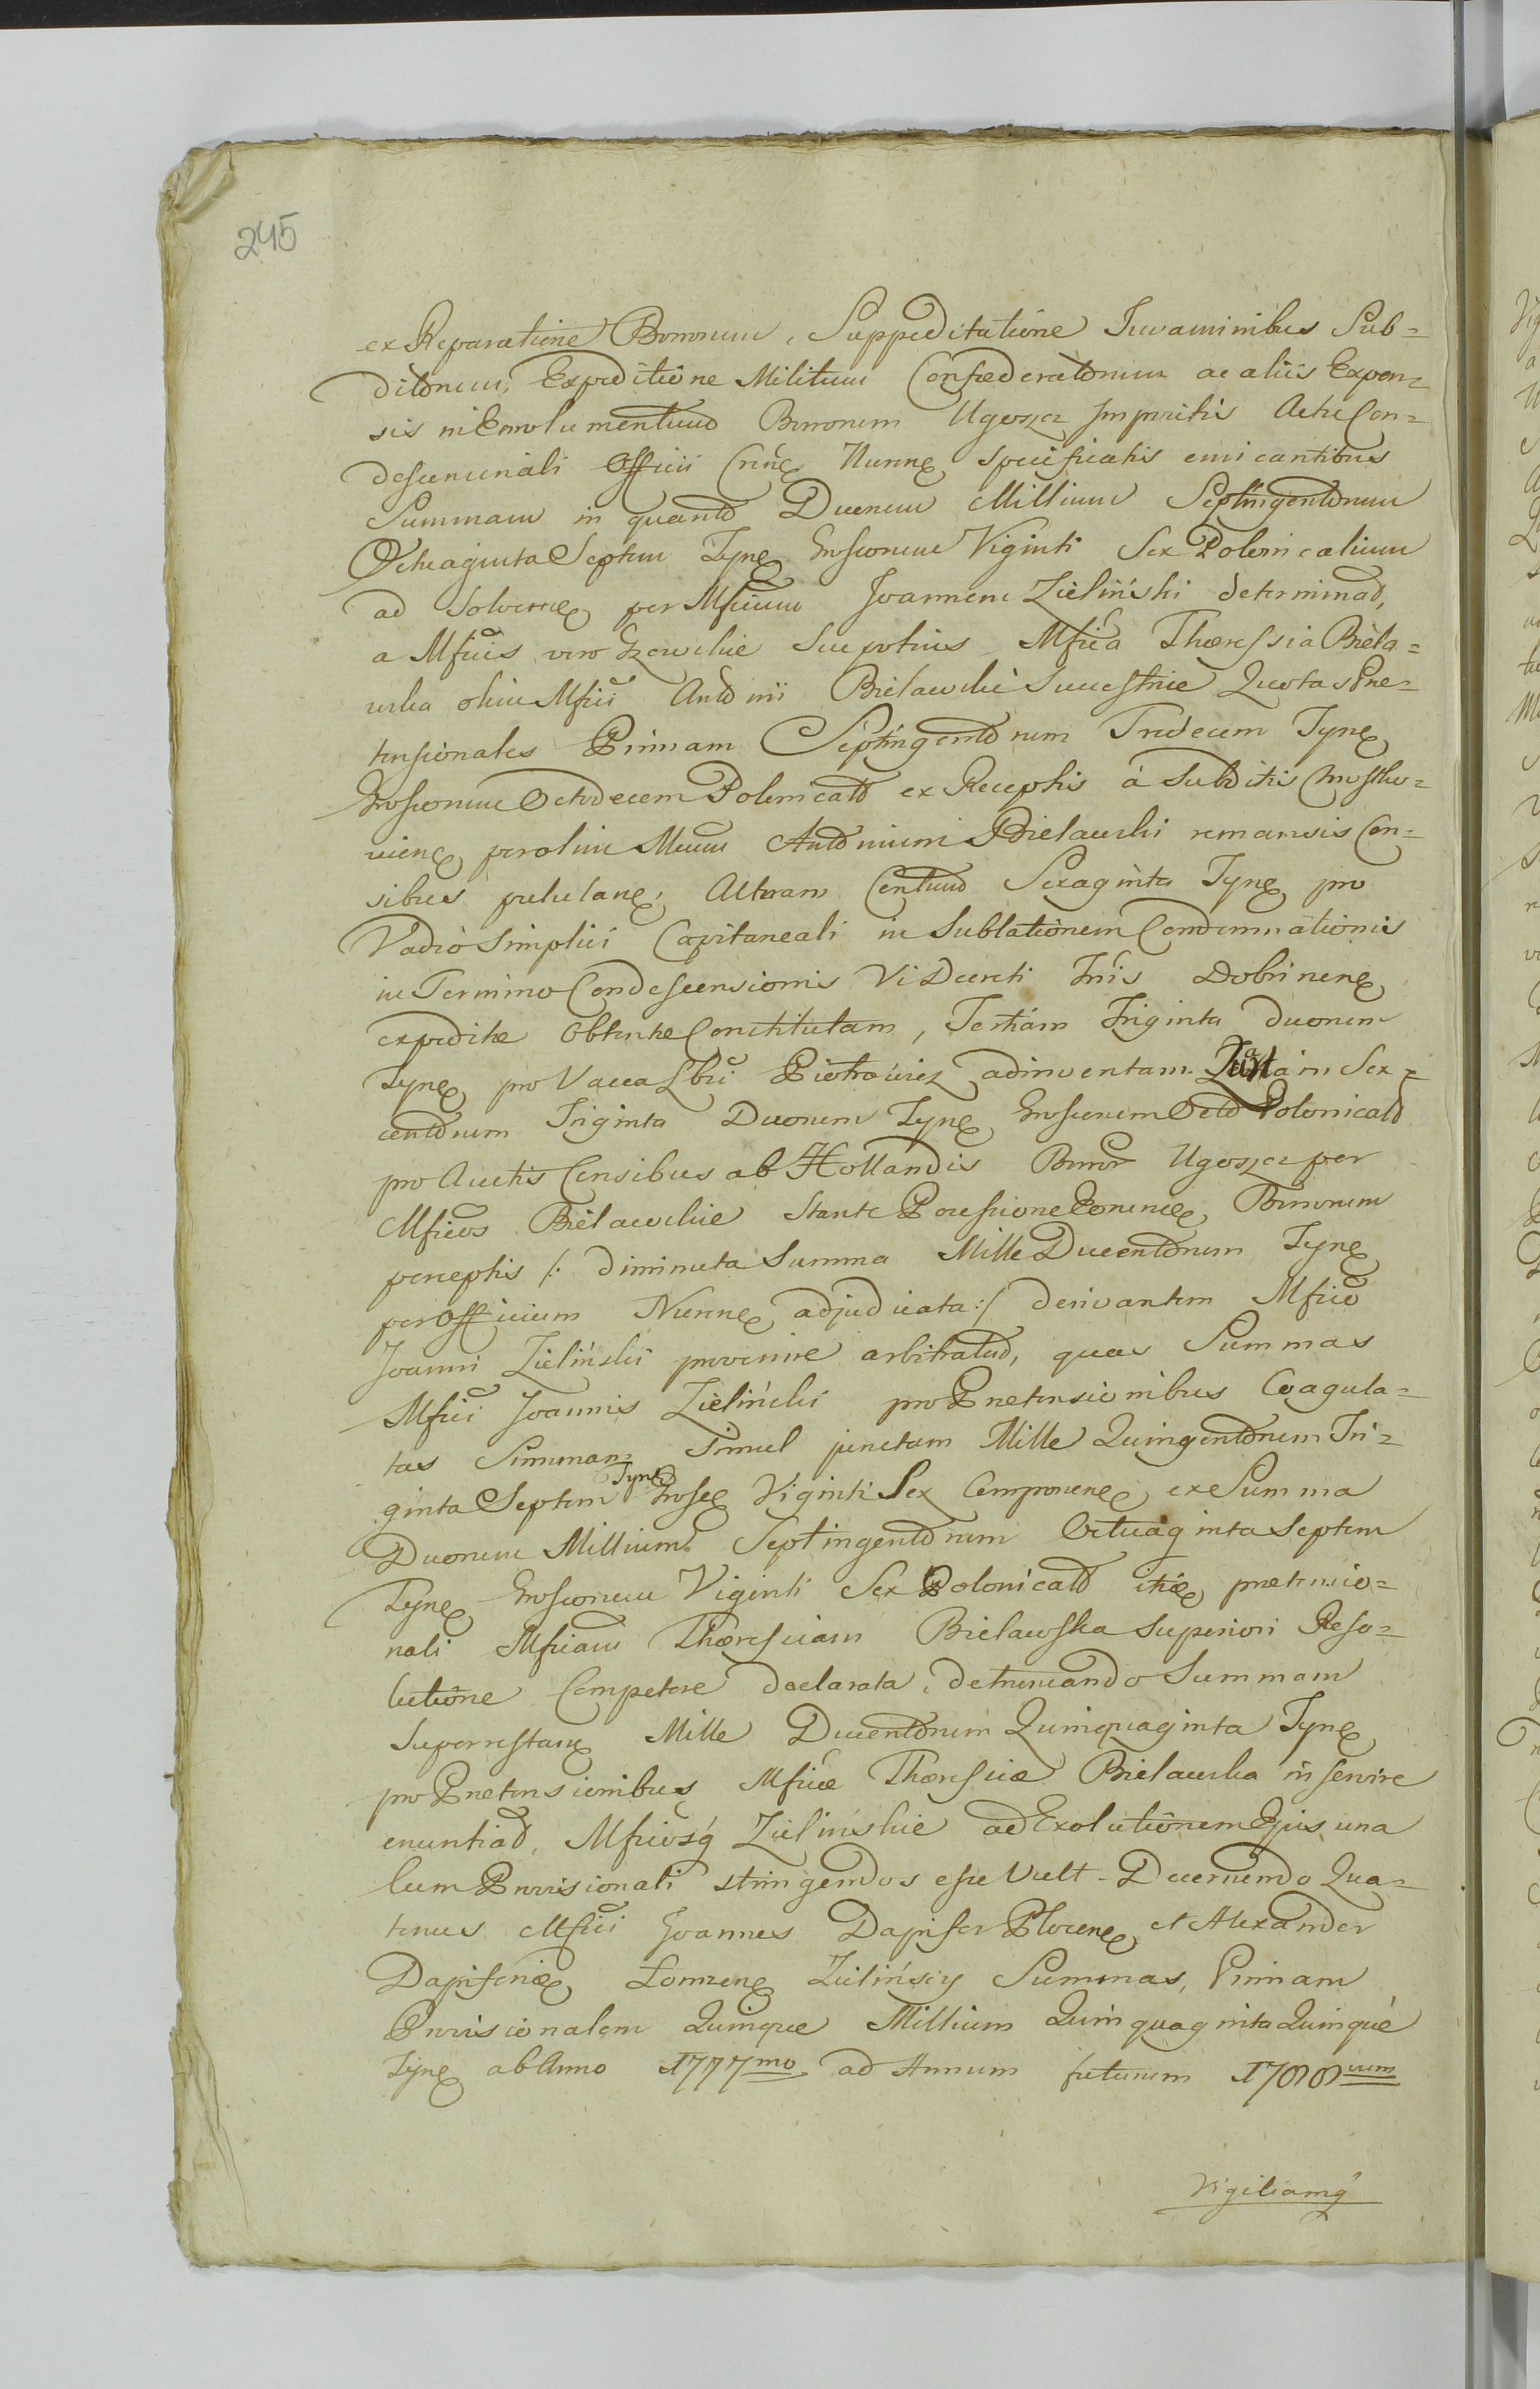 245
ex Reparatione Bonorum, Suppeditatione Juvaminibus Sub=
ditorum, Expeditione Militum Confæderatorum ac aliis Expen=
sis in Emolumentum Bonorum Ugoszcz Impensis Actu Con=
descensionali Officii Nunc specificatis emicantibus
Summam in quanto Duorum Millium Septingentorum
Octuaginta Septem Tynf Grossorum Viginti Sex Polonicalium
ad Solven per Mficum Joannem Zieliński determinat,
a Mficis vero Mfica Theressia Biela=
wska olim Mfici Antonii Bielawski Quotas Præ=
tensionales Primam Septingentorum Tredecem Tynf
Grossorum Octodecem Polonical ex Receptis á Subditis
per olim Mcum Antonium Bielawski remansis Cen=
sibus Alteram Centum Sexaginta Tynf pro
Vadio Simplici Capitaneali in Sublationem Condemnationis
in Termino Condescensionis Vi Decreti Dobrinen
expeditæ Obtentæ Constitutam, Tertiam Triginta duorum
Tynf pro Vacca Piotrowicz adinventam Quartam Sex=
centorum Triginta Duorum Tynf Grossorum Octo Polonical
pro Auctis Censibus ab Hollandis Bonor Ugoszcz per
Mficos Bielawskie Stante Possessione Bonorum
perceptis /: diminuta Summa Mille Ducentorum Tynf
per Officium Nunc adjudicata :/ derivantem Mfico
Joanni Zieliński provenire arbitratur, quas Summas
Mfici Joannis Zieliński pro Prætensionibus Coagula=
tas Summam Simul junctam Mille Quingentorum Tri=
ginta Septem Tynf Gross Viginti Sex Componen ex Summa
Duorum Millium Septingentorum Octuaginta Septem
Tynf Grossorum Viginti Sex Polonical prætensio=
nali Mficam Theressiam Bielawska Superiori Reso=
lutione Competere declarata, detruncando Summam
Superrestan Mille Ducentorum Quinquaginta Tynf
pro Prætensionibus Mficæ Theressiæ Bielawska inservire
enuntiat, Mficosq Zielińskie ad Exolutionem Ejus una
Cum Provisionali stringendos esse Vult. Decernendo Qua=
tenus Mfici Joannes Dapifer Plocen et Alexander
Dapiferid Łomzen Zielińscy Summas, Primam
Provisionalem Quinque Millium Quinquaginta Quinque
Tynf ab Anno 1777mo ad Annum futurum 1788vum
Vigiliamq